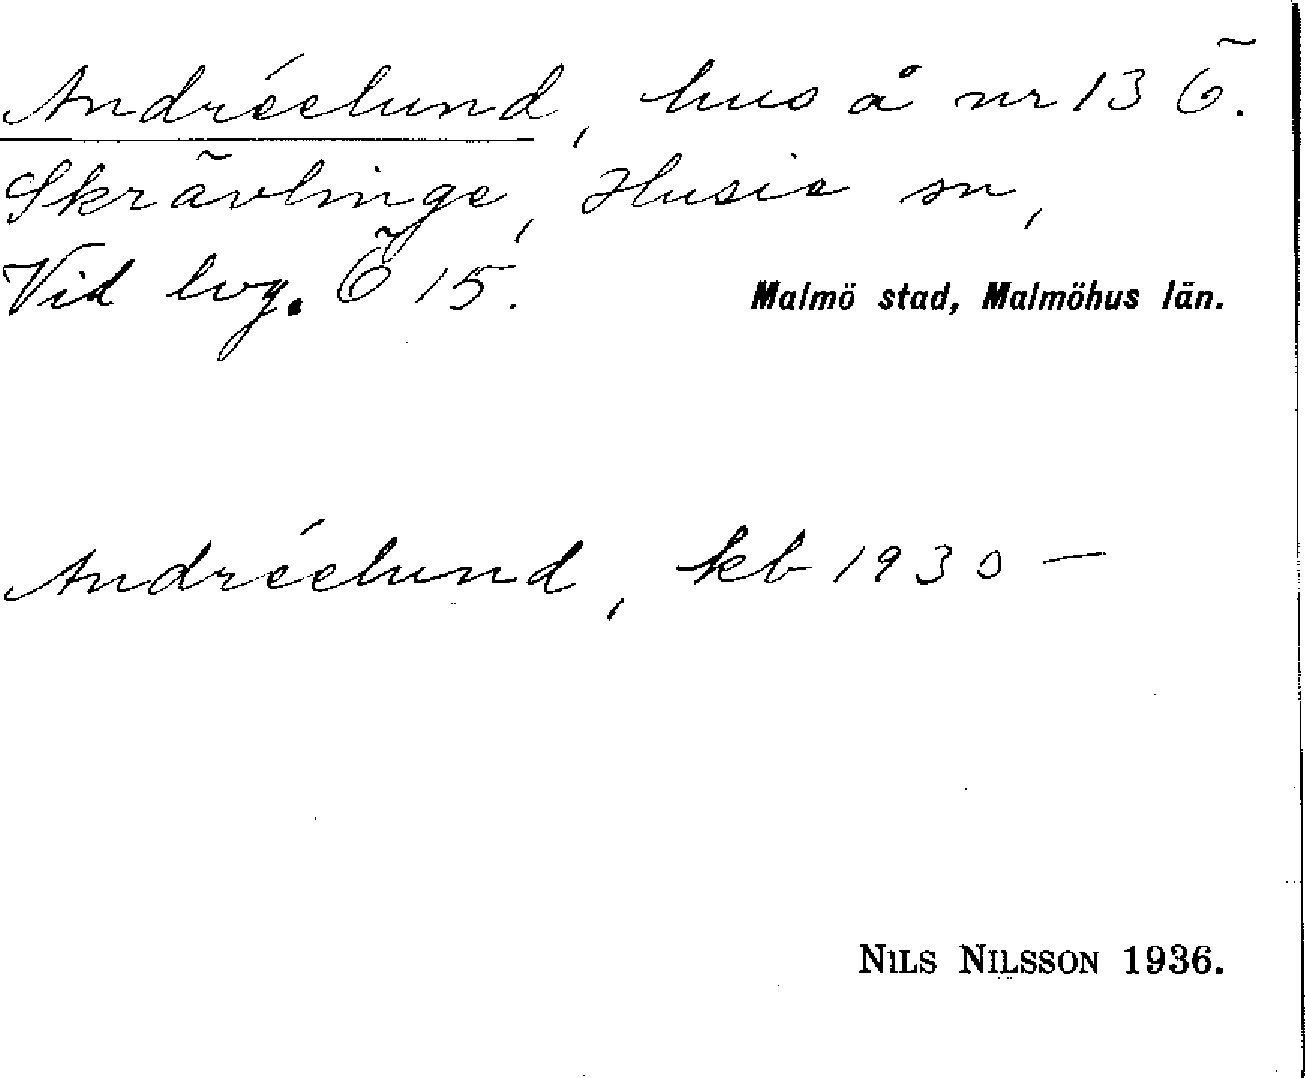 Andréelund, hus å nr 13 Ö.
Skrävlinge, Husie sn,
Vid lvg. Ö 15.
Malmö stad, Malmöhus län.
Andréelund, kb 1930 —
NILS NILSSON 1936.